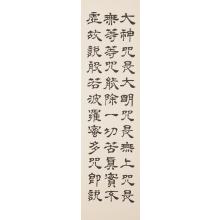 大神咒是大明咒是無上咒是
無等等咒能除一切苦真實不
虛故說般若波羅蜜多咒即說